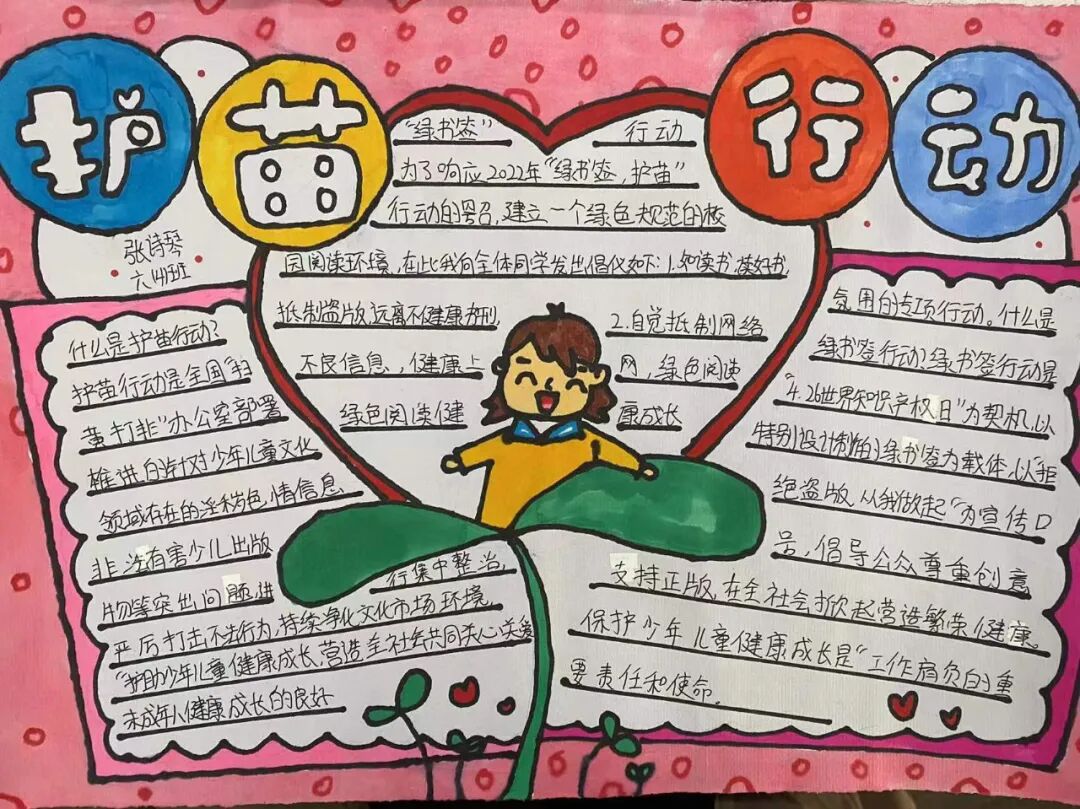 护苗行动
张诗琴
六(4)班
“绿书签” 行动
为了响应2022年“绿书签,护苗”
行动的号召,建立一个绿色规范的校
园阅读环境,在此我向全体同学发出倡仪如下:1.知读书,读好书
抵制盗版,远离不健康 2.自觉抵制网络
不良信息,健康上网,绿色阅读
绿色阅读健康成长
什么是护苗行动?
护苗行动是全国“扫
黄打非”办公室部署
推进的针对少年儿童文化
领域存在的淫秽色,情信息
非法有害少儿出版
物等突出问题,进行集中整治,
严厉打击不法行为,持续净化文化市场环境,
“护助少年儿童健康成长,营造全社会共同关心关爱
未成年人健康成长的良好
氛围的专项行动。什么是
绿书签行动?绿书签行动是
“4.26世界知识产权日”为契机,以
特别设计制的绿书签为载体,以“拒
绝盗版,从我做起“为宣传口
号,倡导公众尊重创意
支持正版,在全社会掀起营造繁荣,健康,
保护少年儿童健康成长是“工作肩负的重
要责任和使命